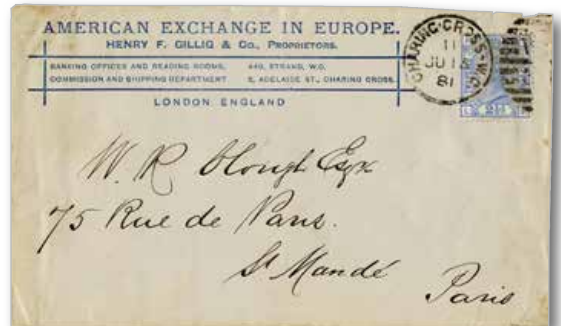 AMERICAN EXCHANGE IN EUROPE.
HENRY F. GILLIG & Co., PROPRIETORS.
BANKING OFFICES AND READING ROOMS, 449, STRAND, W.C.
COMMISSION AND SHIPPING DEPARTMENT 5, ADELAIDE ST., CHARING CROSS.
LONDON ENGLAND
CHARING·CROSS·W.C
11
JU 18
81
W. R Clough Esqr
75 Rue de Paris.
St Mandé
Paris